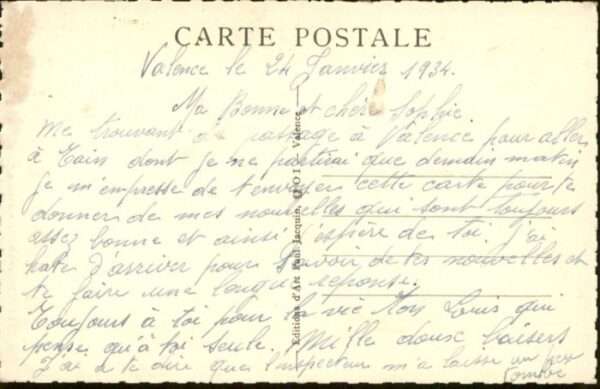 CARTE POSTALE
Valence le 24 Janvier 1934.
Ma Bonne et chère Sophie
Me trouvant de passage à Valence pour aller
à Tain dont je ne partirai que demain matin
je m'empresse de t'envoyer cette carte pour te
donner de mes nouvelles qui sont toujours
assez bonne et ainsi j'espère de toi. J'ai
hate d'arriver pour savoir de tes nouvelles et
te faire une longue reponse.
Toujours à toi pour la vie Ton Louis qui
pense qu'à toi seule. Mille doux baisers
J'ai à te dire que l'inspecteur m'a laissé un peu
Editions d'Art Paul Jacquin, Valence